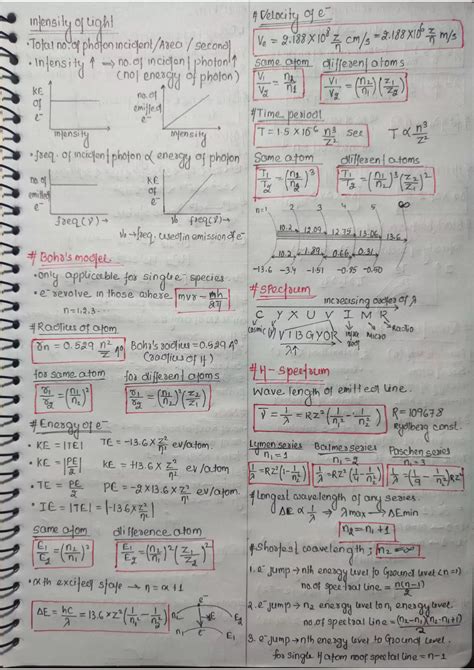 intensity of light
• Total no. of photon incident/Area/second
• Intensity ↑ → no. of incident photon ↑
(not energy of photon)
KE of e⁻
intensity
no. of emitted e⁻
intensity
• freq. of incident photon ∝ energy of photon
no. of emitted e⁻
freq(ν) →
KE of e⁻
ν₀ freq(ν) →
ν₀ → freq. used in emission of e⁻
# Bohr's model
• only applicable for single e⁻ species
• e⁻ revolve in those where mvr = nh/2π
n = 1, 2, 3 ...
# Radius of atom
rn = 0.529 n²/Z A°
Bohr's radius = 0.529 A°
(radius of H)
for same atom
for different atoms
r₁/r₂ = (n₁/n₂)²
r₁/r₂ = (n₁/n₂)² (Z₂/Z₁)
# Energy of e⁻
• KE = |TE|
TE = -13.6 × Z²/n² ev/atom
• KE = |PE|/2
KE = +13.6 × Z²/n² ev/atom
• TE = PE/2
PE = -2 × 13.6 × Z²/n² ev/atom
• IE = |TE| = |-13.6 × Z²/n²|
same atom
difference atom
E₁/E₂ = (n₂/n₁)²
E₁/E₂ = (n₂/n₁)² (Z₁/Z₂)²
• xth excited state → n = x + 1
ΔE = hc/λ = 13.6 × Z² (1/n₁² - 1/n₂²)
n₂
n₁
E₂
E₁
# Velocity of e⁻
Vₑ = 2.188 × 10⁸ Z/n cm/s = 2.188 × 10⁶ Z/n m/s
same atom
different atoms
V₁/V₂ = n₂/n₁
V₁/V₂ = (n₂/n₁) (Z₁/Z₂)
# Time period
T = 1.5 × 10⁻¹⁶ n³/Z² sec
T ∝ n³/Z²
Same atom
different atoms
T₁/T₂ = (n₁/n₂)³
T₁/T₂ = (n₁/n₂)³ (Z₂/Z₁)²
n=1 2 3 4 5 ∞
10.2 12.09 12.75 13.06 13.6
10.2 1.89 0.66 0.31
-13.6 -3.4 -1.51 -0.85 -0.50
# Spectrum
increasing order of λ
C Y X U V I M R
cosmic
VIBGYOR
micro
Radio
λ↑
# H-spectrum
Wave length of emitted line.
ν̄ = 1/λ = RZ² (1/n₁² - 1/n₂²)
R = 109678
rydberg const.
Lymen series
n₁ = 1
Balmer series
n₁ = 2
Paschen series
n₁ = 3
1/λ = RZ² (1 - 1/n₂²)
1/λ = RZ² (1/4 - 1/n₂²)
1/λ = (1/9 - 1/n₂²) RZ²
* longest wavelength of any series
ΔE ∝ 1/λ → λmax → ΔEmin
n₂ = n₁ + 1
* Shortest wavelength ; n₂ = ∞
1. e⁻ jump → nth energy level to Ground level (n=1)
no. of spectral line = n(n-1)/2
2. e⁻ jump → n₂ energy level to n₁ energy level
no. of spectral line = (n₂-n₁)(n₂-n₁+1)/2
3. e⁻ jump → nth energy level to Ground level
for single H atom no of spectal line = n-1